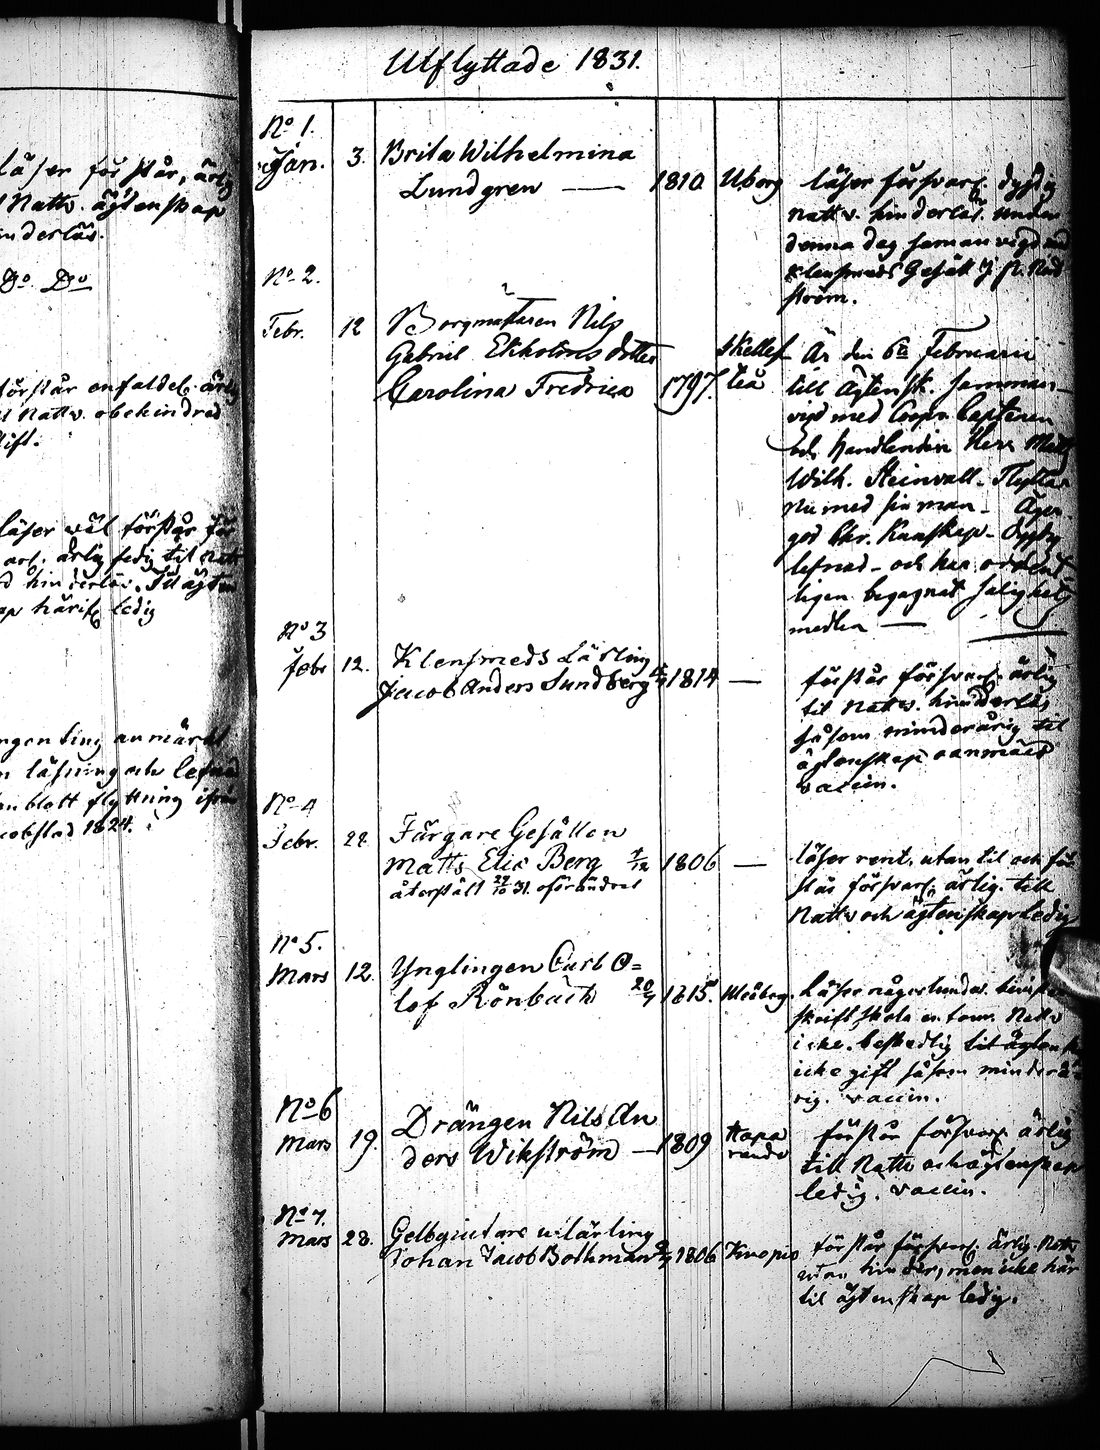 läser förstår, ärlig
Nattv. ägtenskap
hinderlös.
Do. Do
förstår enfaldel. ärlig
Nattv. obehindrad
gift.
läser väl förstår för
svarl. ärlig ledig til Natt
hinderlös. Till ägten
härifr. ledig
ingenting anmärkt
läsning och lefnad
blott flyttning ifrån
Jacobstad 1824.
Utflyttade 1831.
No 1.
Jan. 3. Brita Wilhelmina
Lundgren — 1810 Uborg
läser försvarl. dygdig
Nattv. hinderlös. under
denna dag samanvigd med
Klensmeds Gesäll J. P. Nord
ström.
No 2.
Febr. 12 Borgmästaren Nils
Gabriel Ekholms dotter
Carolina Fredrica 1797. Skellef
teå
Är den 6te Februarii
till ägtensk. samman-
vigd med Coopv. Capitenen
och handlanden Herr Matts
Wilh. Steinvall. Flyttar
nu med sin man. Äger
god Chr. Kunskap. Dygdig
lefnad - och har ordent
ligen begagnat salighets
medlen —
No 3
Febr 12. Klensmeds Lärling
Jacob Anders Sundberg 1814 —
förstår försvarl. ärlig
til Nattv. hinderlös
såsom minderårig til
ägtenskap oanmäld
vaccin.
No 4
Febr. 22 Färgare Gesällen
Matts Eric Berg 1806 —
återstält 29/10 31. oförändrat
läser rent, utan til och för
står försvarl. ärlig. till
Nattv och ägtenskap ledig
No 5.
Mars 12. Ynglingen Carl O=
lof Rönback 20/7 1815. Uleåborg.
Läser någorlunda.
Nattv
icke. beskedlig til ägtensk
icke gift såsom minderå
rig. vaccin.
No 6
Mars 19. Drängen Nils An
ders Wikström — 1809 Hapa
randa
förstår försvarl ärlig
till Nattv och ägtenskap
ledig. vaccin.
No 7.
Mars 28. Gelbgjutare utlärling
Johan Jacob Bothman 1806 Kuopio
förstår försvarl. ärlig. Nattv
utan hinder, men icke här
til ägtenskap ledig.